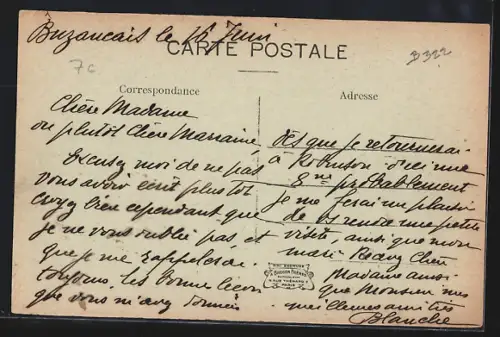 Buzancais le 16 Juin
CARTE POSTALE
B322
7c
Correspondance
Adresse
Chère Madame
ou plutôt Chère Marraine,
Excusez moi de ne pas
vous avoir écrit plus tôt
croyez bien cependant que
je ne vous oublie pas et
que je me rappelerai
toujours, les bonne leçon
que vous m'avez données
dès que je retournerai
à Robinson d'ici une
8ne probablement
je me ferai un plaisir
de vs rendre une petite
visite, ainsi que mon
mari. Recevez Chère
Madame ainsi
que Monsieur mes
meilleures amitiés
Blanche